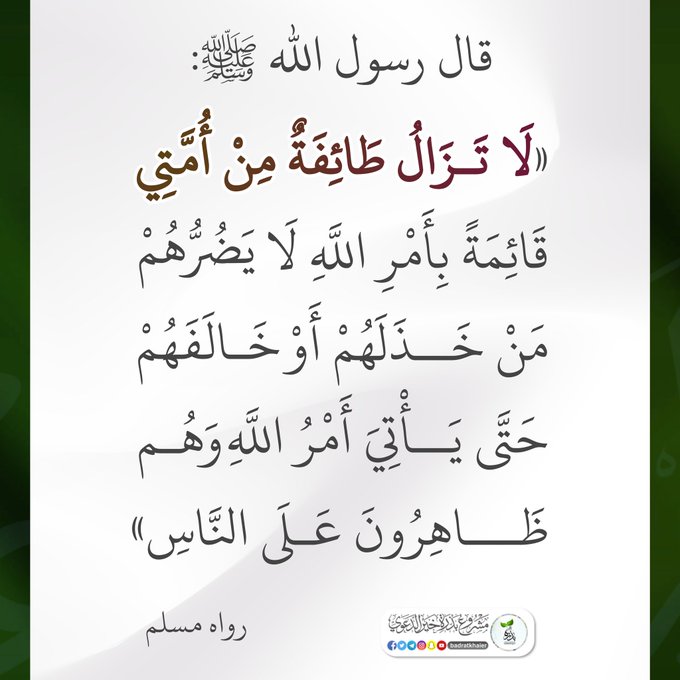 قال رسول الله ﷺ:
«لَا تَـزَالُ طَائِفَةٌ مِنْ أُمَّتِي
قَائِمَةً بِأَمْرِ اللَّهِ لَا يَضُرُّهُمْ
مَنْ خَـــذَلَهُمْ أَوْ خَـالَفَهُمْ
حَتَّى يَـــأْتِيَ أَمْرُ اللَّهِ وَهُـــم
ظَـــاهِرُونَ عَـلَى النَّاسِ»
رواه مسلم
مشروع بذرة خير الدعوي
بذرة
badratkhaier